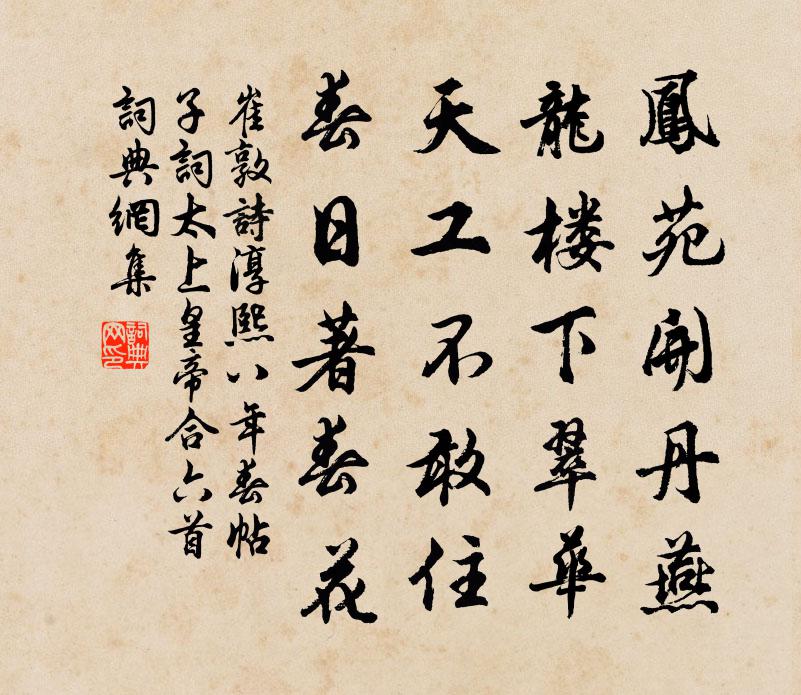 鳳苑開丹燕
龍楼下翠華
天工不敢住
春日著春花
崔敦詩淳熙八年春帖
子詞太上皇帝合六首
詞典網集
詞典
网印